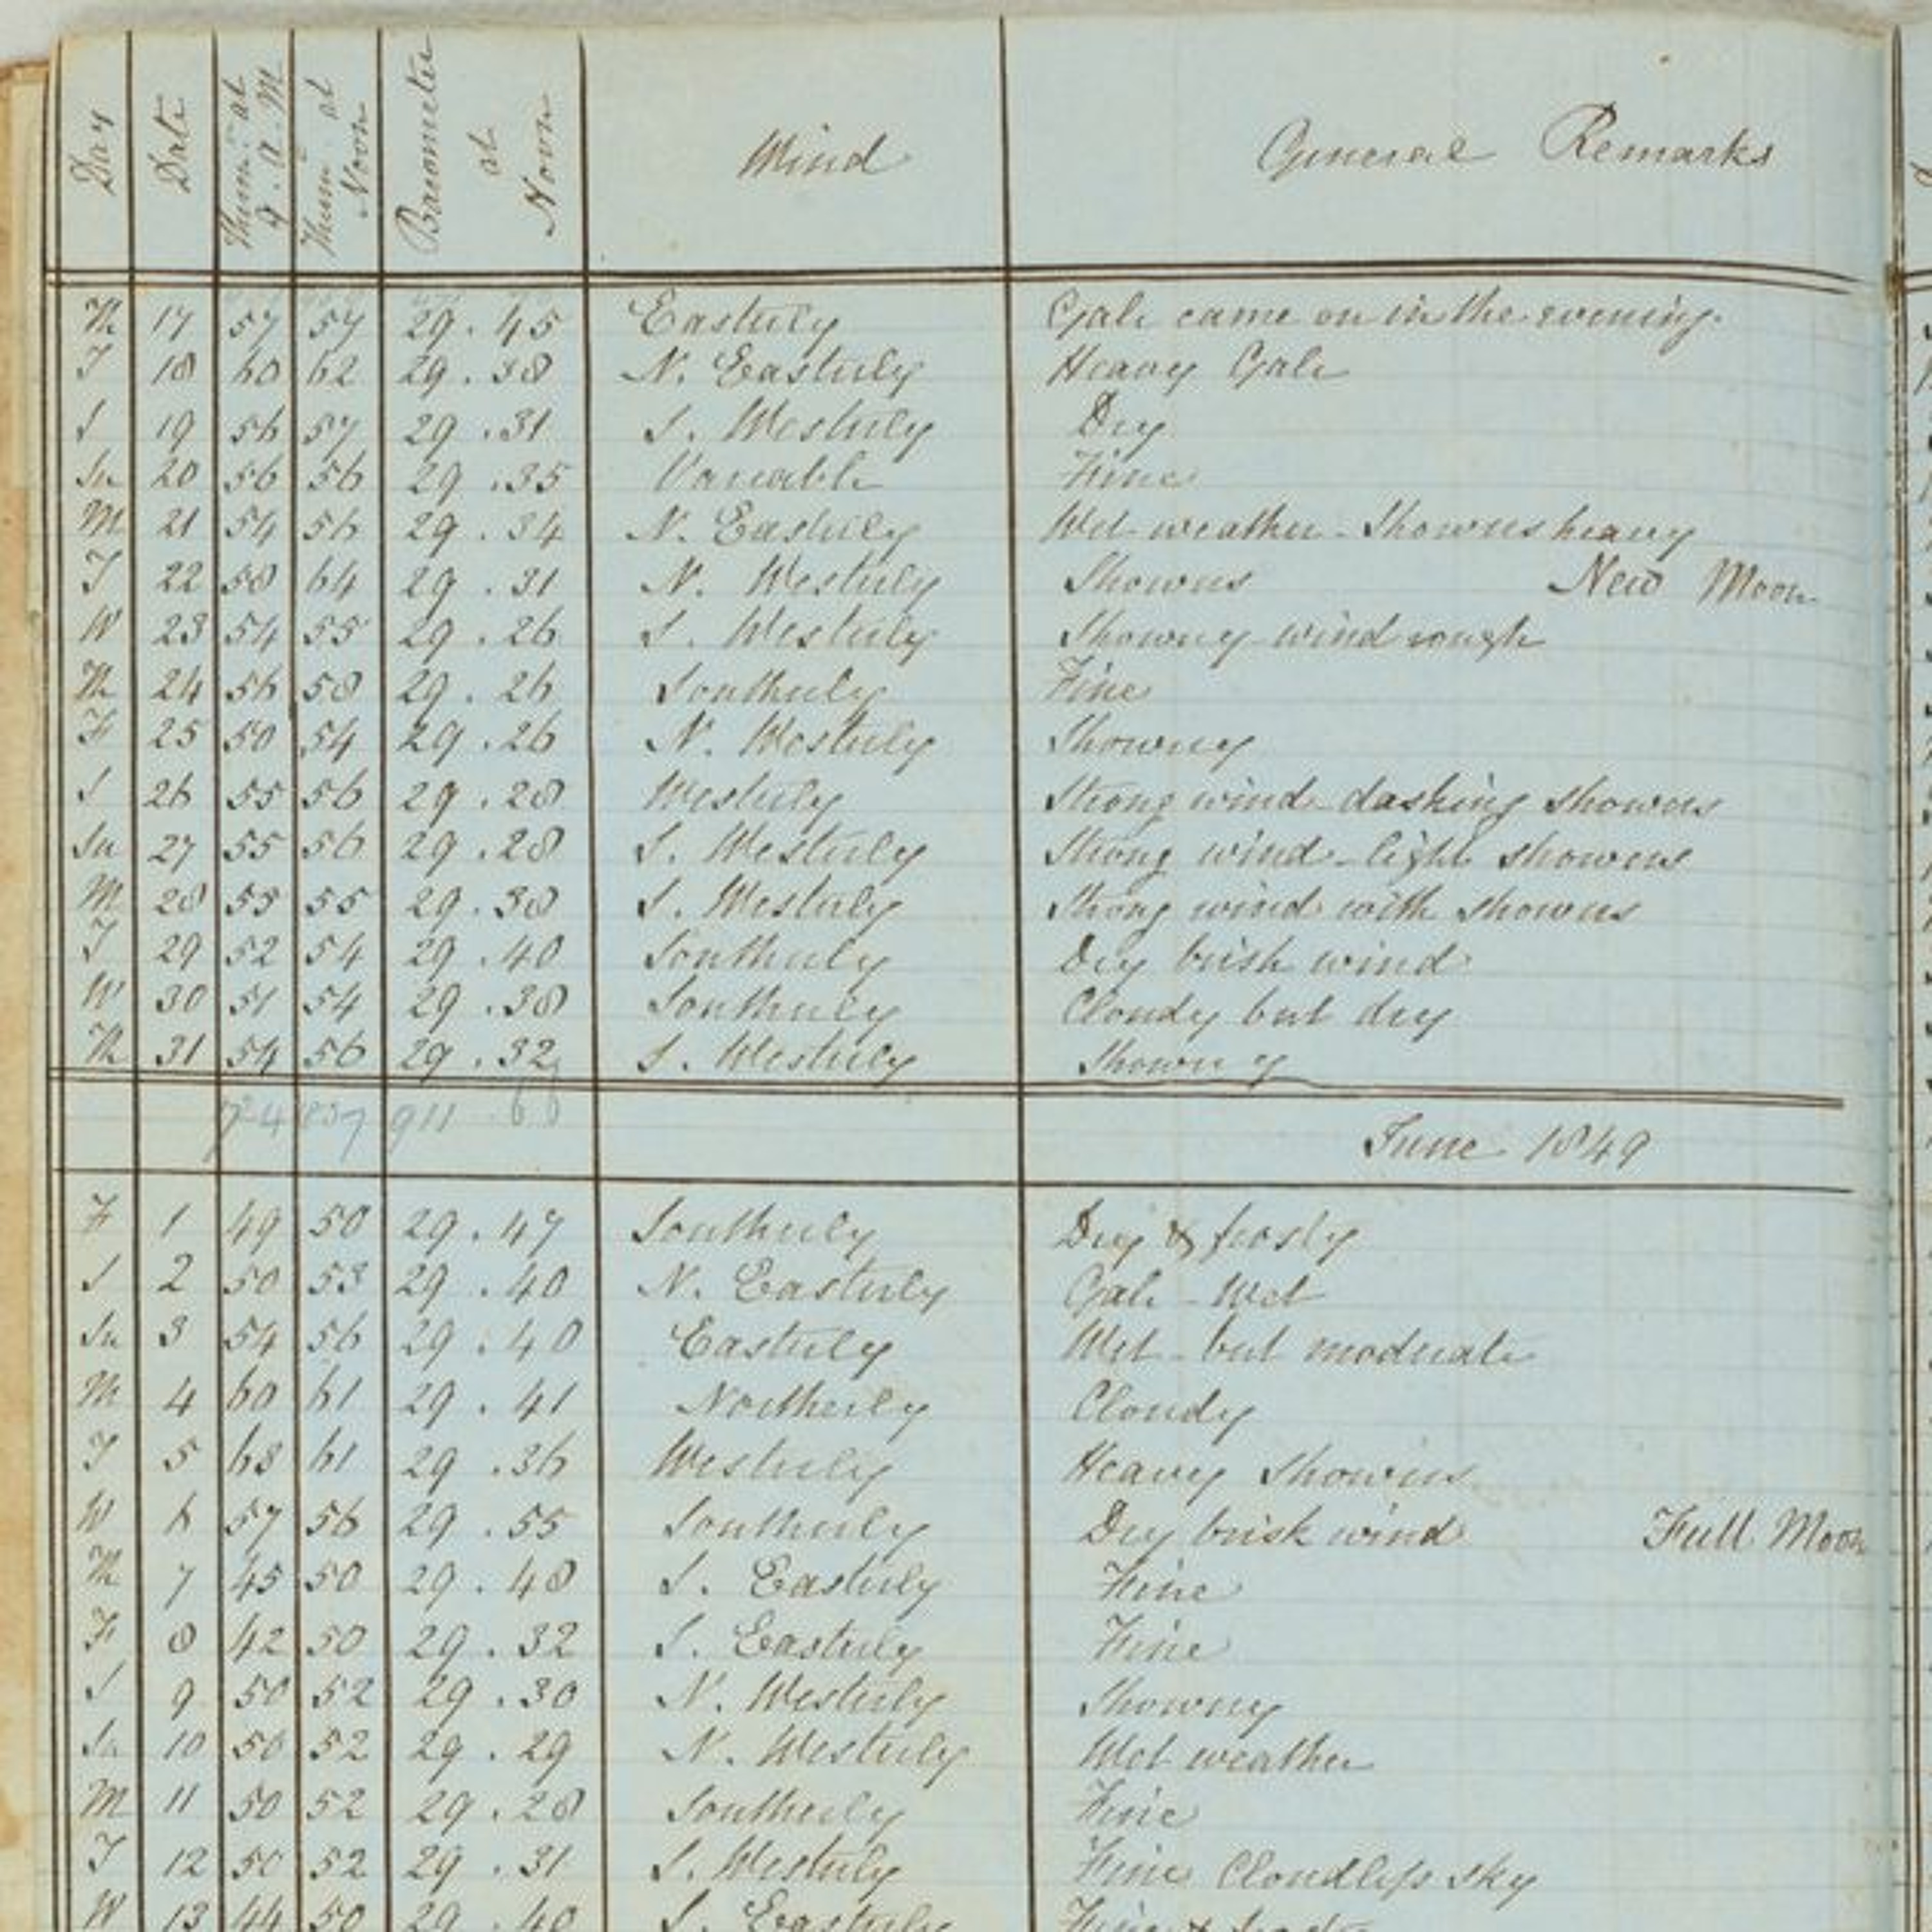 Day Date Therm. at 9 a.M Therm. at Noon Barometer at Noon Wind General Remarks
Th 17 57 57 29.45 Easterly Gale came on in the evening.
F 18 60 62 29.38 N. Easterly Heavy Gale
S 19 56 57 29.31 S. Westerly Dry
Su 20 56 56 29.35 Variable Fine
M 21 54 56 29.34 N. Easterly Wet weather - Showers heavy
T 22 58 64 29.31 N. Westerly Showers New Moon
W 23 54 55 29.26 S. Westerly Showery wind rough
Th 24 56 58 29.26 Southerly Fine
F 25 50 54 29.26 N. Westerly Showery
S 26 55 56 29.28 Westerly Strong wind dashing showers
Su 27 55 56 29.28 S. Westerly Strong wind - light showers
M 28 55 55 29.38 S. Westerly Strong wind with showers
T 29 52 54 29.40 Southerly Dry brisk wind
W 30 51 54 29.38 Southerly Cloudy but dry
Th 31 54 56 29.32 S. Westerly Showery
911
June 1849
F 1 49 50 29.47 Southerly Dry & frosty
S 2 50 53 29.40 N. Easterly Gale - Wet
Su 3 54 56 29.40 Easterly Wet - but moderate
M 4 60 61 29.41 Northerly Cloudy
T 5 63 61 29.36 Westerly Heavy showers
W 6 57 56 29.55 Southerly Dry brisk wind Full Moon
Th 7 45 50 29.48 S. Easterly Fine
F 8 42 50 29.32 S. Easterly Fine
S 9 50 52 29.30 N. Westerly Showery
Su 10 50 52 29.29 N. Westerly Wet weather
M 11 50 52 29.28 Southerly Fine
T 12 50 52 29.31 S. Westerly Fine Cloudless sky
W 13 44 50 29.40 S. Easterly Fine &